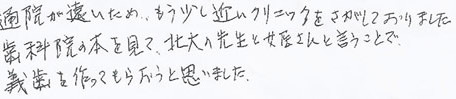 通院が遠いため、もう少し近いクリニックをさがしておりました
歯科院の本を見て、北大の先生と女医さんと言うことで、
義歯を作ってもらおうと思いました。